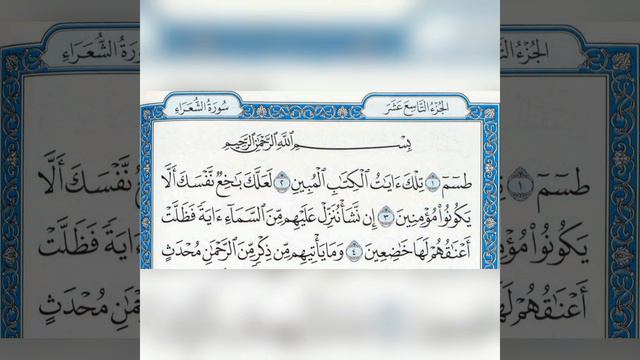 الجزء التاسع عشر
سورة الشعراء
بِسْمِ اللَّهِ الرَّحْمَٰنِ الرَّحِيمِ
طسٓمٓ ١ تِلْكَ ءَايَٰتُ ٱلْكِتَٰبِ ٱلْمُبِينِ ٢ لَعَلَّكَ بَٰخِعٌ نَّفْسَكَ أَلَّا
يَكُونُوا۟ مُؤْمِنِينَ ٣ إِن نَّشَأْ نُنَزِّلْ عَلَيْهِم مِّنَ ٱلسَّمَآءِ ءَايَةً فَظَلَّتْ
أَعْنَٰقُهُمْ لَهَا خَٰضِعِينَ ٤ وَمَا يَأْتِيهِم مِّن ذِكْرٍ مِّنَ ٱلرَّحْمَٰنِ مُحْدَثٍ